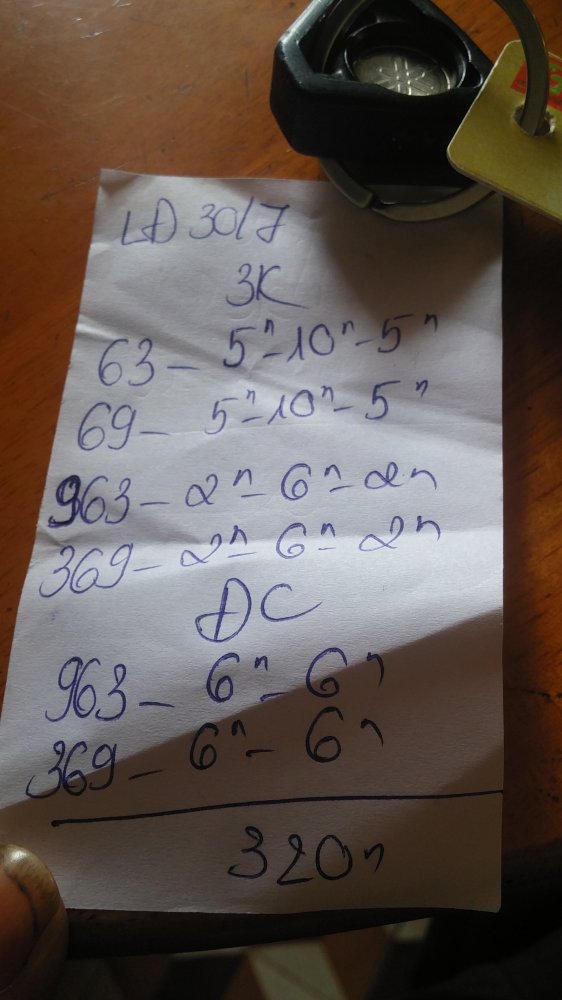 LĐ 30/7
3K
63 - 5ⁿ - 10ⁿ - 5ⁿ
69 - 5ⁿ - 10ⁿ - 5ⁿ
963 - 2ⁿ - 6ⁿ - 2n
369 - 2ⁿ - 6ⁿ - 2ⁿ
ĐC
963 - 6ⁿ - 6ⁿ
369 - 6ⁿ - 6ⁿ
320n